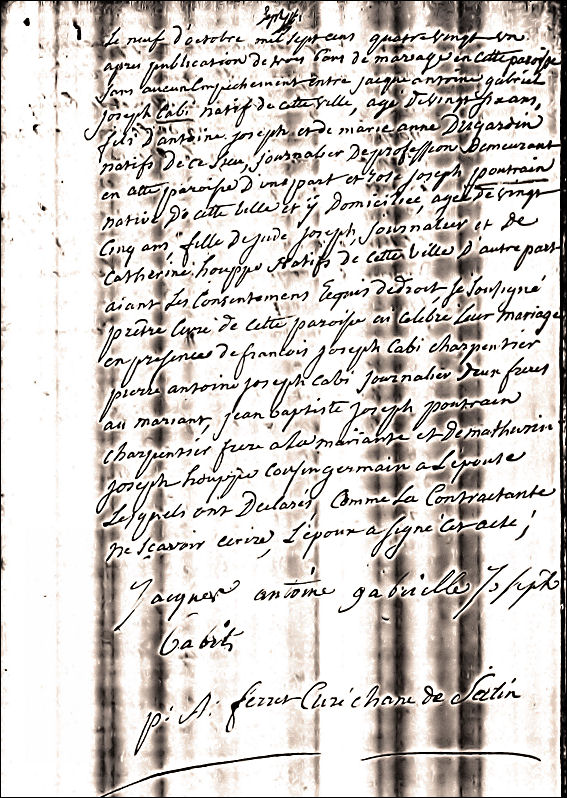 Le neuf d'octobre mil sept cens quatre vingt un
apres publication de trois bans de mariage en cette paroisse
sans aucun Empechement entre jacque antoine gabriel
joseph Cabi natif de cette ville, agé de vingt six ans,
fils d'antoine joseph et de marie anne Dujardin
natifs de ce lieu, journalier de profession Demeurant
en cette paroisse D'une part et rose joseph poutrain
native de cette ville et ÿ Domiciliée, agée de vingt
Cinq ans fille de jude joseph, journalier et De
Catherine houppe Natifs de cette ville D'autre part
aiant Les Consentemens Requis de droit je soussigné
prêtre Curé de cette paroisse ai celébré Leur mariage
en presence de francois joseph Cabi charpentier
pierre antoine joseph Cabi journalier Deux freres
au mariant, jean baptiste joseph poutrain
charpentier frere a La mariante et de mathurin
joseph houppe Cousin germain a L'épouse
Lesquels ont Declarés, Comme La Contractante
ne scavoir ecrire, L'époux a signé cet acte;
Jacques antoine gabrielle Joseph
Cabit
p: A: ferret Curé chane de St